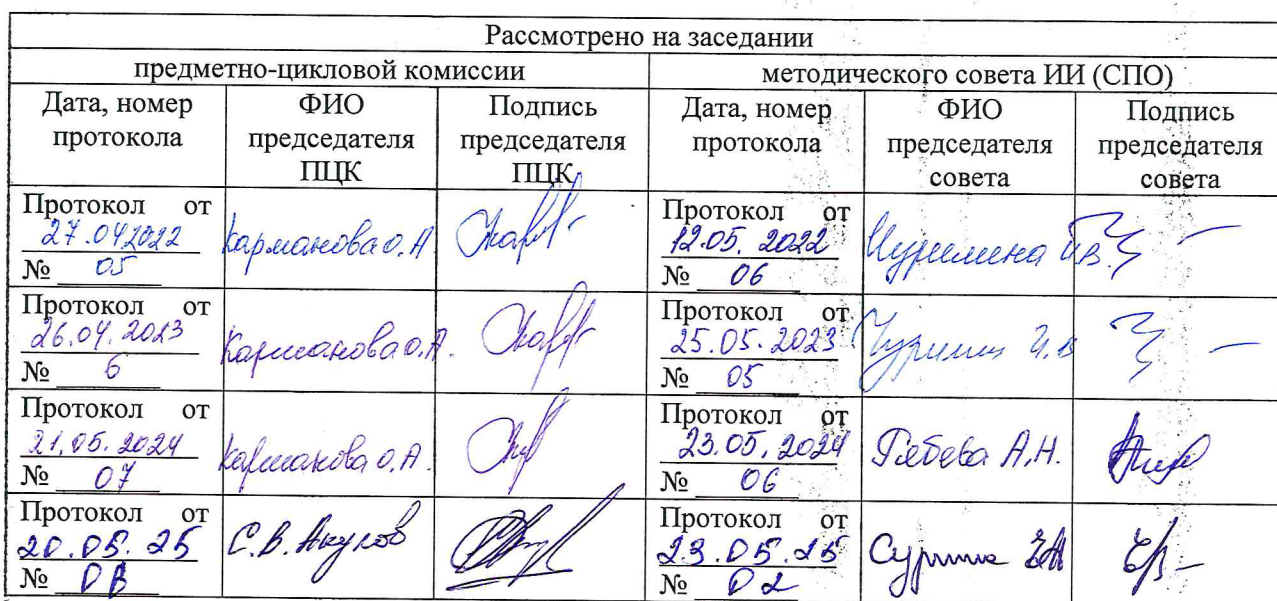 Рассмотрено на заседании
предметно-цикловой комиссии методического совета ИИ (СПО)
Дата, номер протокола ФИО председателя ПЦК Подпись председателя ПЦК Дата, номер протокола ФИО председателя совета Подпись председателя совета
Протокол от
27.04.2022
№ 05
Карманова О.А
Протокол от
12.05. 2022
№ 06
И.В.
Протокол от
26.04.2023
№ 6
Карманова О.А.
Протокол от
25.05.2023
№ 05
И.В
Протокол от
21.05.2024
№ 07
Карманова О.А.
Протокол от
23.05.2024
№ 06
А.Н.
Протокол от
20.05.25
№
С.В.
Протокол от
23.05.25
№ 02